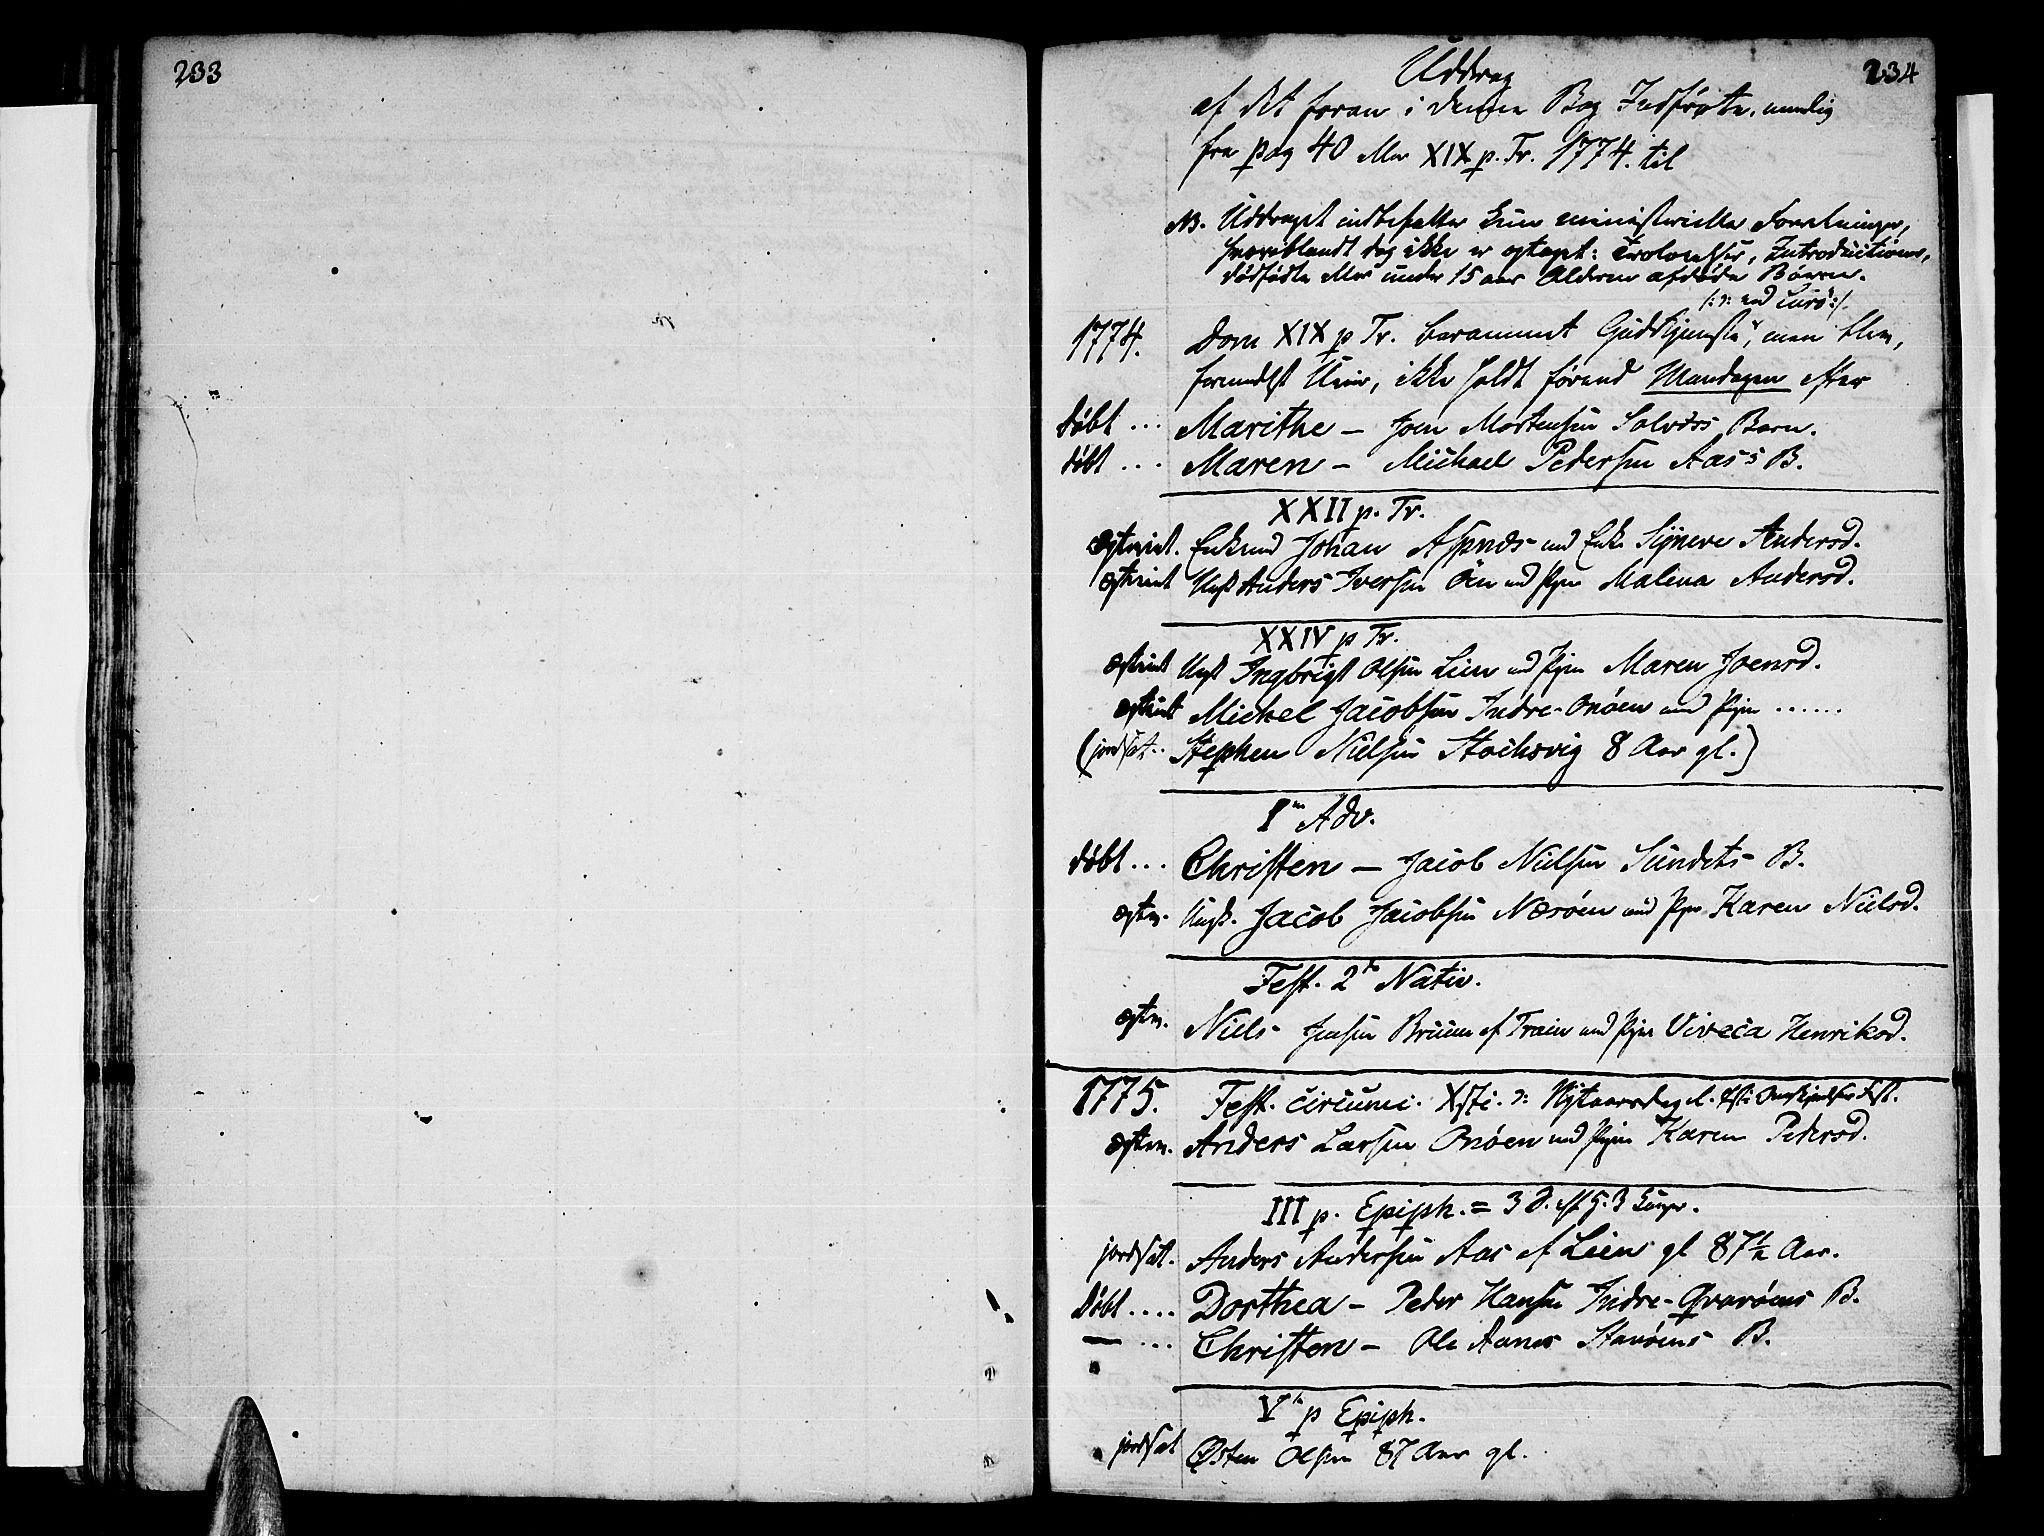 233
234
Uddrag
af det foran i denne Bog Indførte, nemlig
fra pag 40 eller XIX p. Tr. 1774. til
NB. Uddraget indbefatter kun ministerielle Forretninger,
hvoriblandt dog ikke er optaget: Trolovelser, Introductioner,
dødfødte eller under 15 aar Alderen afdøde Børn.
1774. Dom XIX p Tr. berammet Gudstjeneste, men blev,
formedelst Uveir, ikke holdt førend Mandagen efter
døbt ... Marithe – Joen Mortensen Solværs Barn.
døbt ... Maren – Michael Pedersen Aas's B.
XXII p. Tr.
ægteviet. Enkemd Johan Aspnæs med Enke Synneve Andersd.
ægteviet Ungk Anders Iversen Øen med Pigen Malena Andersd.
XXIV p Tr.
ægteviet Ungk Ingbrigt Olsen Lien med Pigen Maren Joensd.
ægteviet Michel Jacobsen Indre-Onøen med Pigen ......
(jordsat.. Stephen Nielsen Stochsvig 8 Aar gl.)
I Adv.
døbt ... Christen – Jacob Nielsen Sundets B.
ægtev. Ungk. Jacob Jacobsen Næsøen med Pige Karen Nielsd.
Fest. 2 Nativ.
ægtev. Niels Jensen Bruun af Træen med Pigen Viveca Henriksd.
1775. Fest. circumc. Xsti. ɔ: Nytaarsdag
ægtev. Anders Larsen Onøen med Pigen Karen Pedersd.
III p. Epiph. = 3 S. eft H. 3 Konger.
jordsat. Anders Andersen Aas af Lien gl 87½ Aar.
Døbt .... Dorthea – Peder Hansen Indre-Qvarøens B.
— ... Christen – Ole Aanes Stenøens B.
V p Epiph.
jordsat Østen Olsen 87 Aar gl.